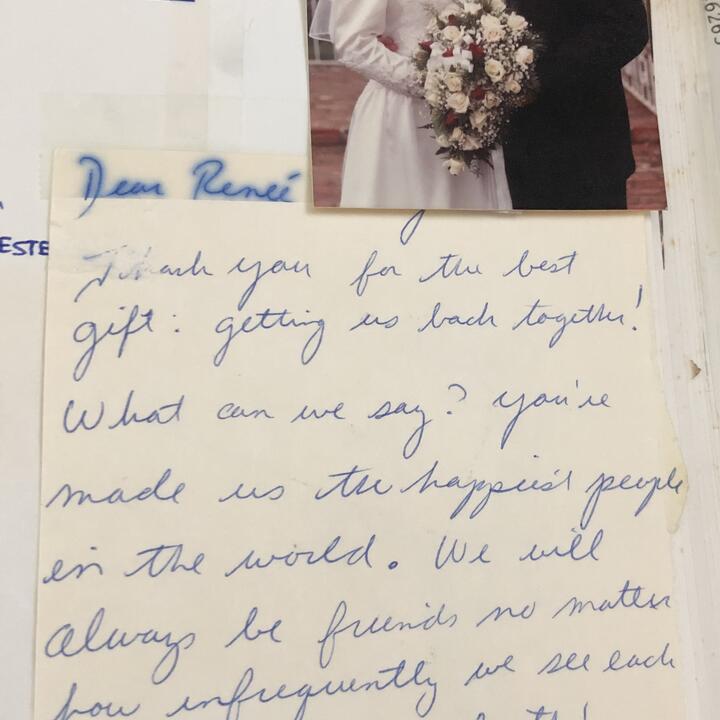 ESTE
Dear Reneé
Thank you for the best
gift: getting us back together!
What can we say? you're
made us the happiest people
in the world. We will
always be friends no matter
how infrequently we see each